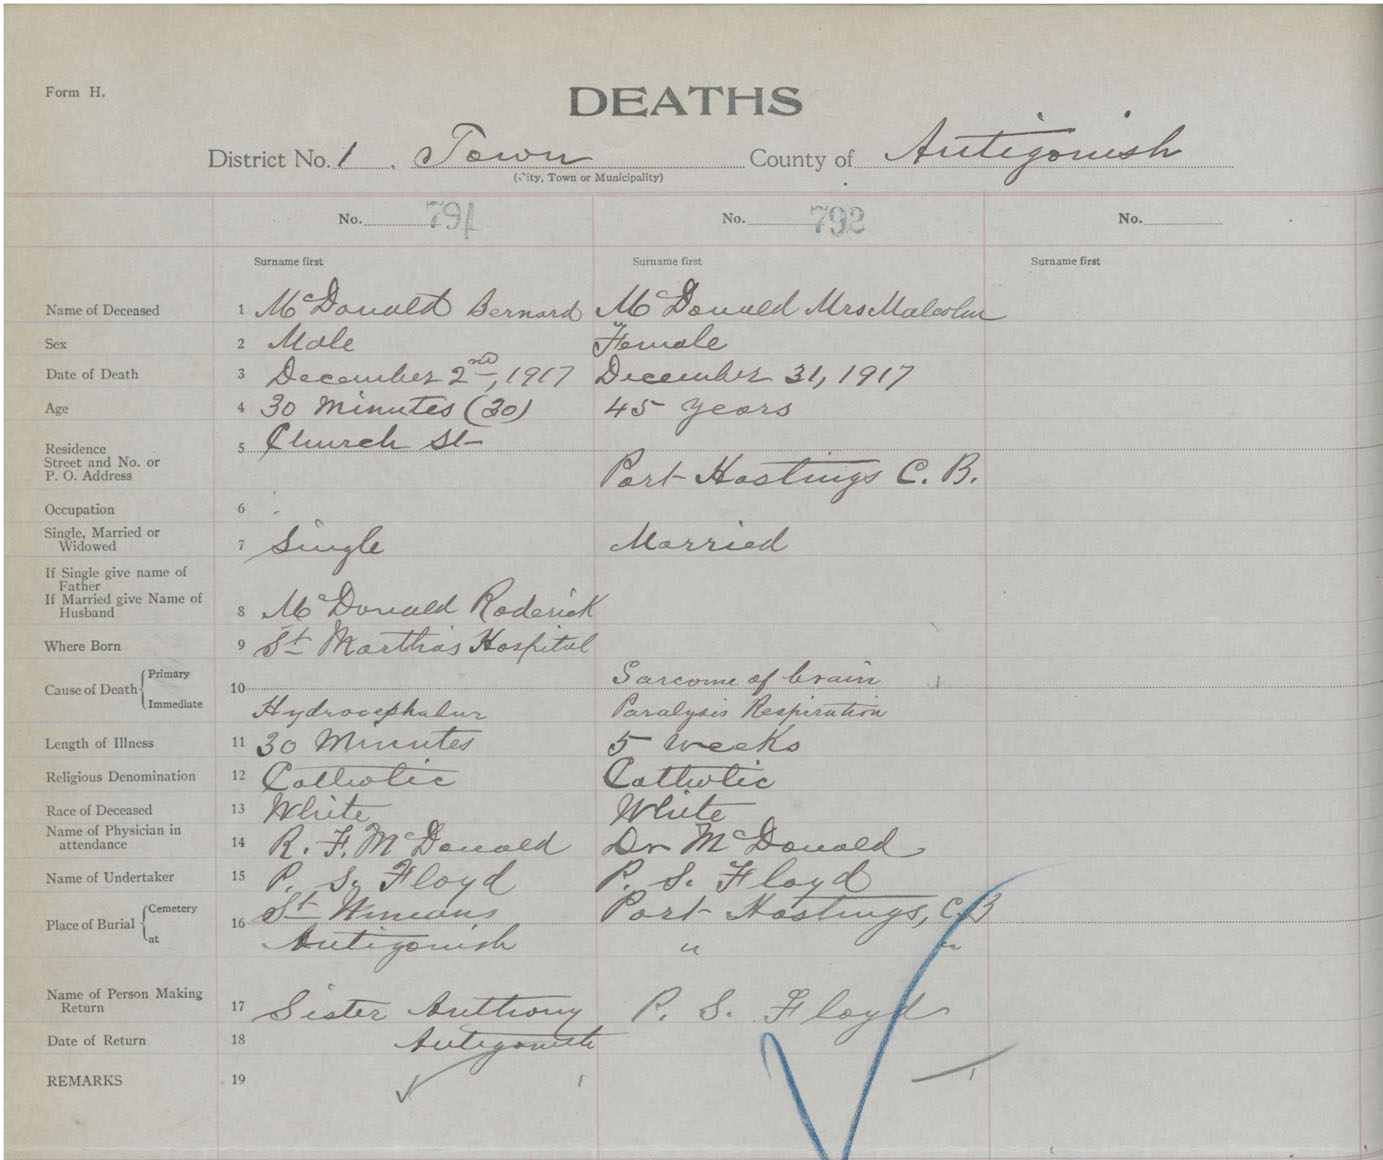 Form H.
DEATHS
District No. 1. Town County of Antigonish
(City, Town or Municipality)
No. 791 No. 792 No.
Surname first Surname first Surname first
Name of Deceased 1 McDonald Bernard McDonald Mrs Malcolm
Sex 2 Male Female
Date of Death 3 December 2nd, 1917 December 31, 1917
Age 4 30 Minutes (30) 45 years
Residence 5 Church St
Street and No. or
P. O. Address Port Hastings C. B.
Occupation 6
Single, Married or
Widowed 7 Single Married
If Single give name of
Father
If Married give Name of
Husband 8 McDonald Roderick
Where Born 9 St Martha's Hospital
Cause of Death Primary 10 Sarcome of brain
Immediate Hydrocephalus Paralysis Respiration
Length of Illness 11 30 Minutes 5 weeks
Religious Denomination 12 Catholic Catholic
Race of Deceased 13 White White
Name of Physician in
attendance 14 R. F. McDonald Dr McDonald
Name of Undertaker 15 P. S. Floyd P. S. Floyd
Place of Burial Cemetery 16 St Port Hastings, C. B
at Antigonish " "
Name of Person Making
Return 17 Sister Anthony P. S. Floyd
Date of Return 18 Antigonish
REMARKS 19